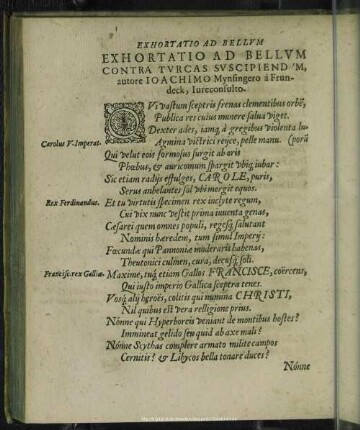 EXHORTATIO AD BELLVM
EXHORTATIO AD BELLVM
CONTRA TVRCAS SVSCIPIEND'M,
autore IOACHIMO Mynsingero á Frun-
deck, Iureconsulto.
QVi vastum sceptris frenas clementibus orbē,
Publica res cuius munere salua viget.
Dexter ades, iamq́; à gregibus violenta lu-
Carolus V. Imperat.
Agmina victrici reijce, pelle manu. (porū
Qui velut eois formosus surgit ab aris
Phœbus, & auricomum spargit vbiq; iubar:
Sic etiam radijs effulges, CAROLE, puris,
Serus anhelantes sol vbi mergit equos.
Rex Ferdinandus.
Et tu virtutis specimen rex inclyte regum,
Cui vix nunc vestit prima iuuenta genas,
Cæsarei quem omnes populi, regesq́; salutant
Nominis hæredem, tum simul Imperij:
Fœcundæ qui Pannoniæ moderaris habenas,
Theutonici culmen, cura, decusq́; soli.
Francisc. rex Galliæ.
Maxime, tuq́; etiam Gallos FRANCISCE, coërcens,
Qui iusto imperio Gallica sceptra tenes.
Vosq́; alij heroës, colitis qui numina CHRISTI,
Nil quibus est vera relligione prius.
Nónne qui Hyperboreis veniant de montibus hostes?
Immineat gelido seu quid ab axe mali?
Nónne Scythas complere armato milite campos
Cernitis? & Libycos bella tonare duces?
Nónne